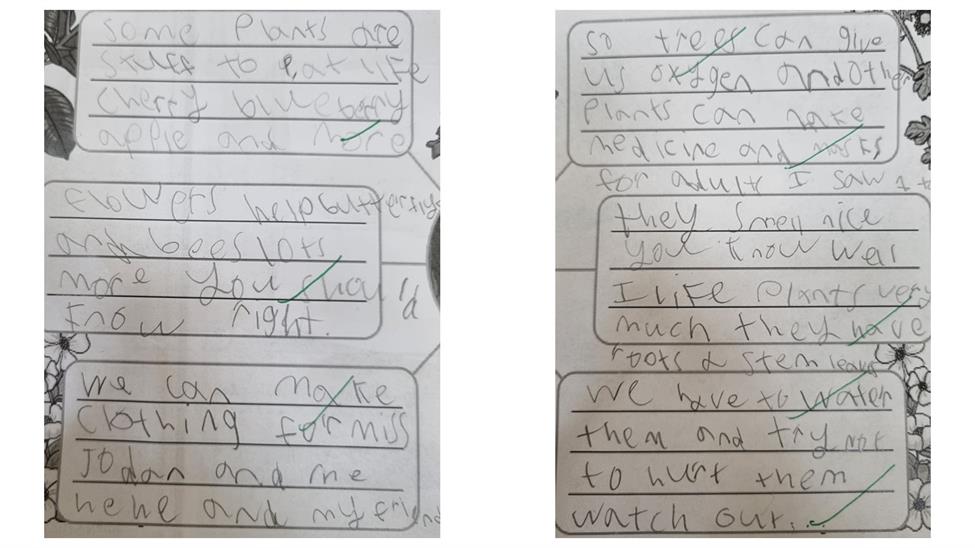 some Plants are
stuff to eat life
cherry blueberry
apple and more
flowers help butterflys
and bees lots
more you shou'ld
know right.
we can make
clothing for miss
Jodan and me
hehe and my friend
so trees can give
us oxygen and other
plants can make
medicine and masks
for adults I saw
they smell nice
you know well
I like plants very
much they have
roots & stem leaves
we have to water
them and try not
to hurt them
watch out.